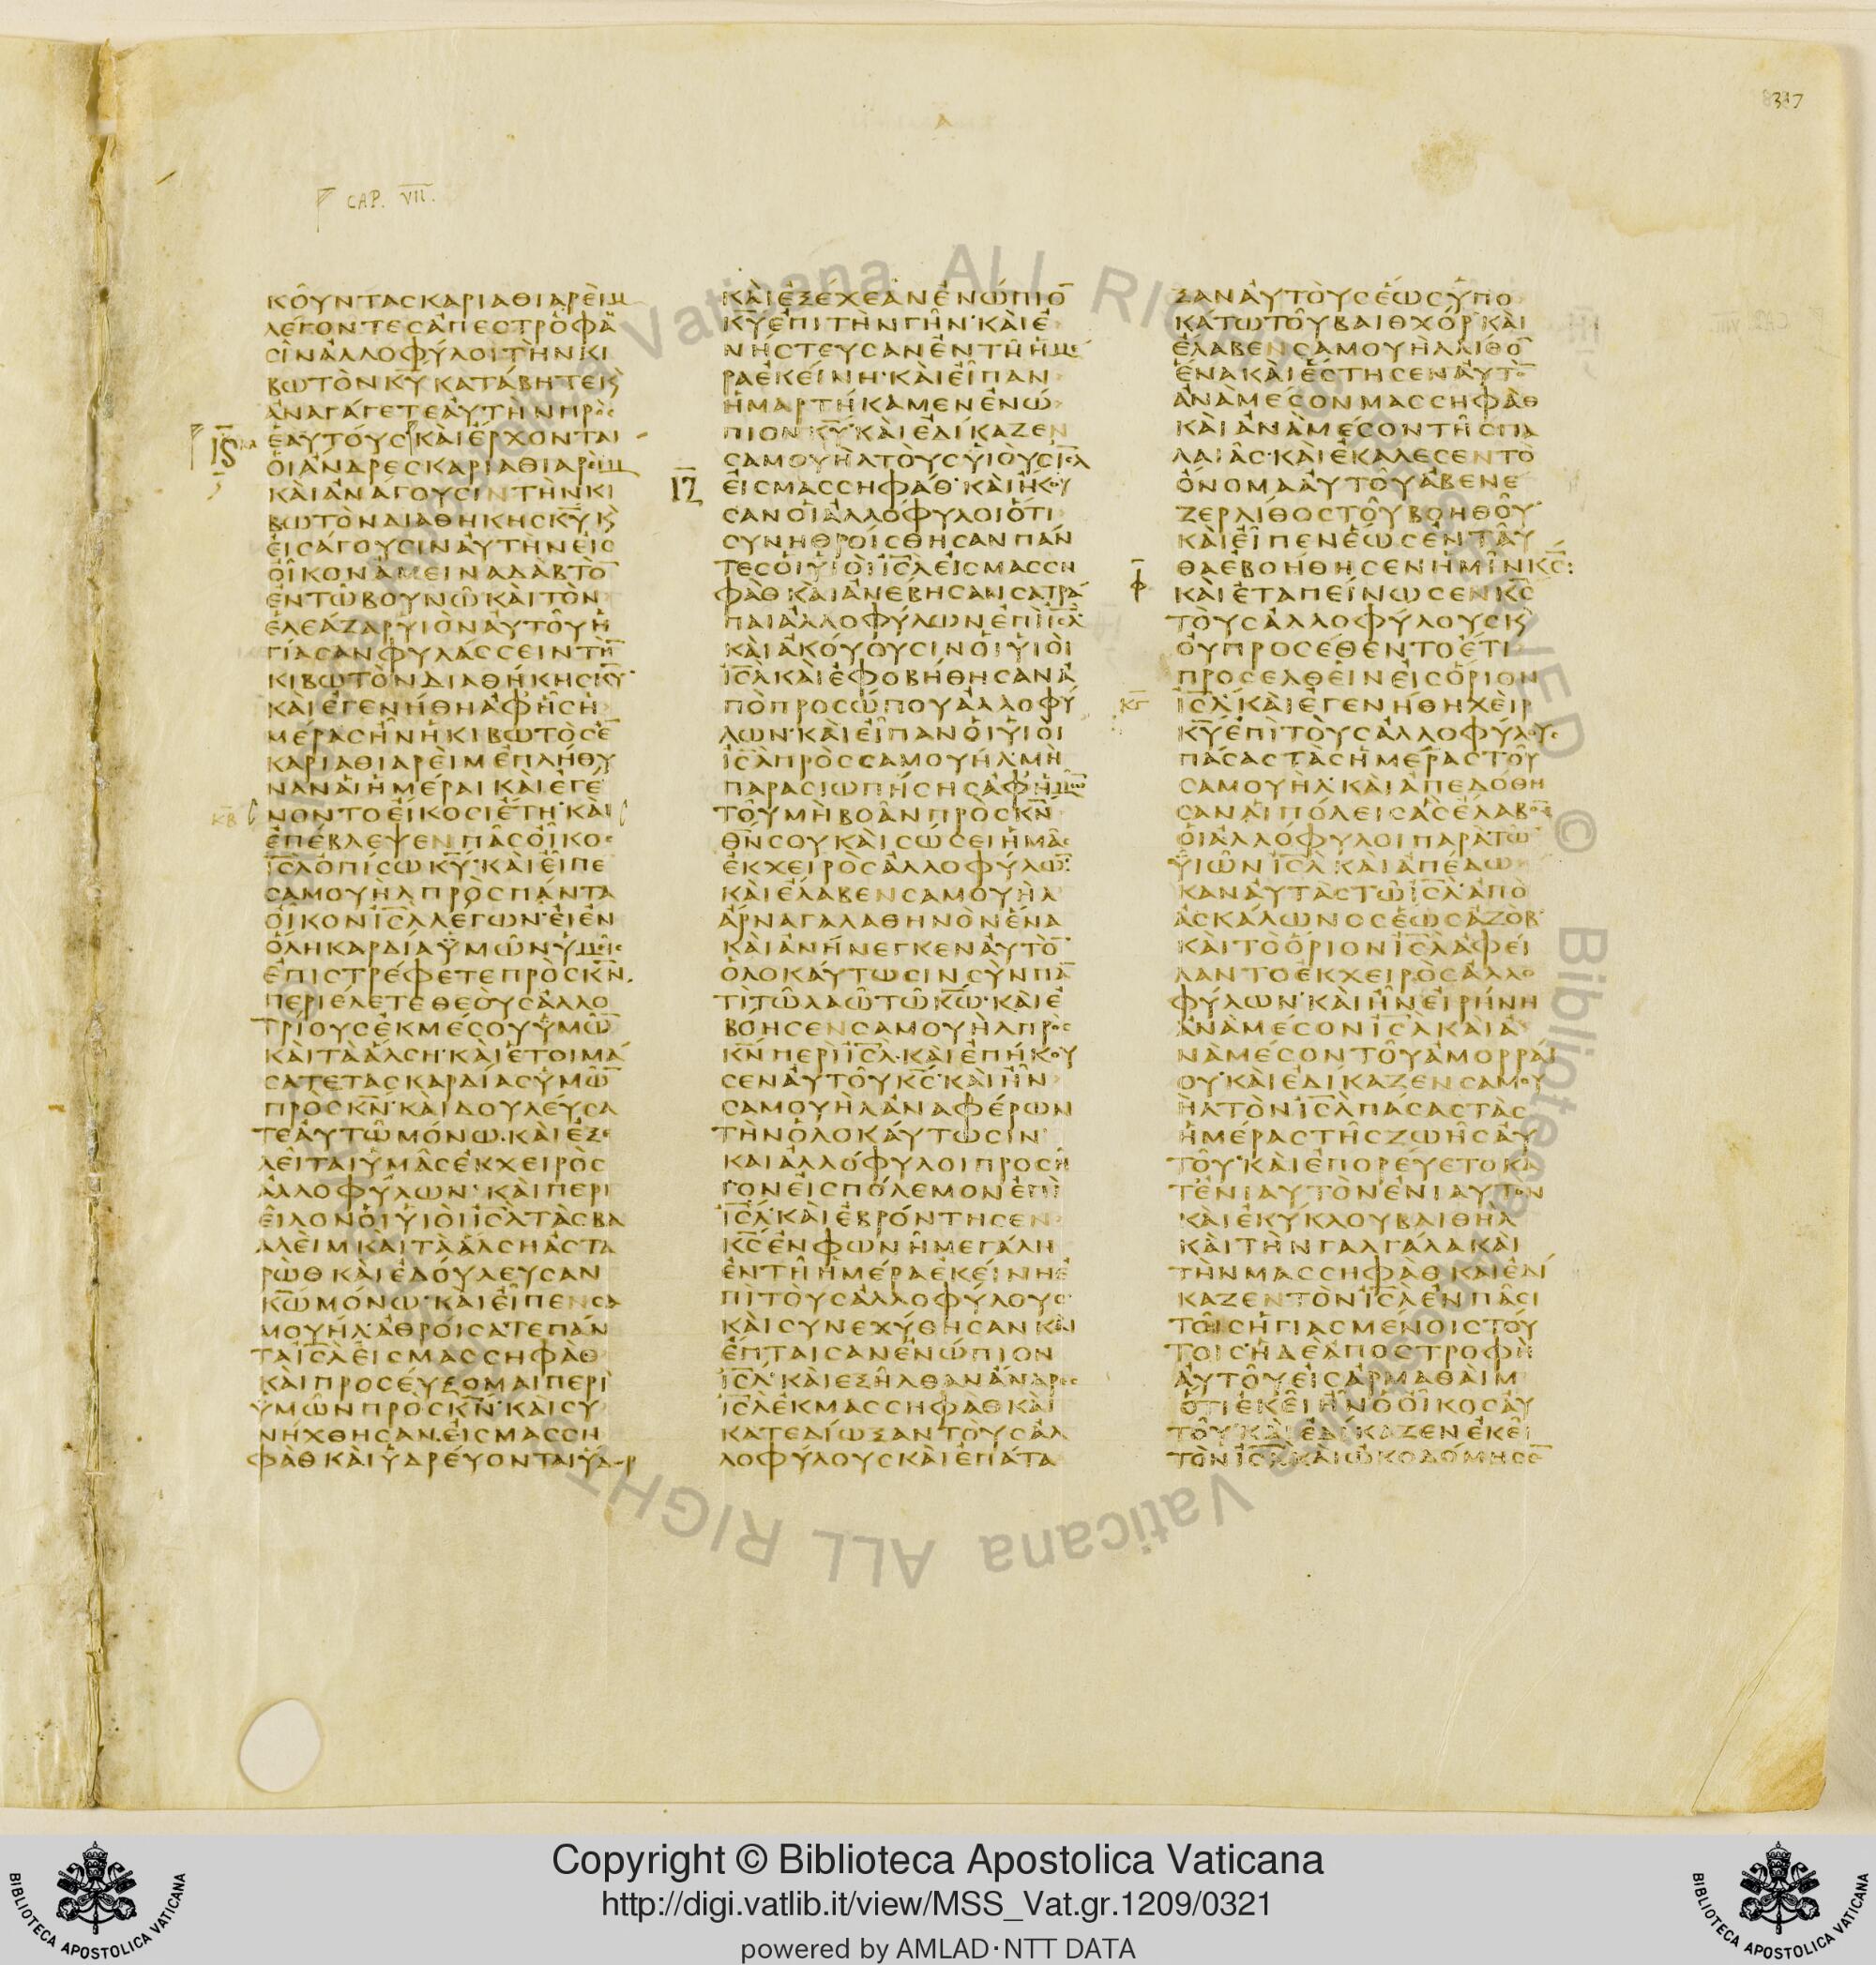 317
CAP. VII.
ΚΟΥΝΤΑΣΚΑΡΙΑΘΙΑΡΕΙΜ
ΛΕΓΟΝΤΕΣΑΠΕΣΤΡΟΦΑ
ΣΙΝΑΛΛΟΦΥΛΟΙΤΗΝΚΙ
ΒΩΤΟΝΚΥΚΑΤΑΒΗΤΕΚ
ΑΝΑΓΑΓΕΤΕΑΥΤΗΝΠΡΟΣ
ΕΑΥΤΟΥΣΚΑΙΕΡΧΟΝΤΑΙ
ΟΙΑΝΔΡΕΣΚΑΡΙΑΘΙΑΡΕΙΜ
ΚΑΙΑΝΑΓΟΥΣΙΝΤΗΝΚΙ
ΒΩΤΟΝΔΙΑΘΗΚΗΣΚΥΚ
ΕΙΣΑΓΟΥΣΙΝΑΥΤΗΝΕΙΣ
ΟΙΚΟΝΑΜΕΙΝΑΔΑΒΤΟ
ΕΝΤΩΒΟΥΝΩΚΑΙΤΟΝ
ΕΛΕΑΖΑΡΥΙΟΝΑΥΤΟΥΗ
ΓΙΑΣΑΝΦΥΛΑΣΣΕΙΝΤΗ
ΚΙΒΩΤΟΝΔΙΑΘΗΚΗΣΚΥ
ΚΑΙΕΓΕΝΗΘΗΑΦΗΣΗ
ΜΕΡΑΣΗΝΗΚΙΒΩΤΟΣΕ
ΚΑΡΙΑΘΙΑΡΕΙΜΕΠΛΗΘΥ
ΝΑΝΑΙΗΜΕΡΑΙΚΑΙΕΓΕ
ΝΟΝΤΟΕΙΚΟΣΙΕΤΗΚΑΙ
ΕΠΕΒΛΕΨΕΝΠΑΣΟΙΚΟΣ
ΙΣΛΟΠΙΣΩΚΥΚΑΙΕΙΠΕ
ΣΑΜΟΥΗΛΠΡΟΣΠΑΝΤΑ
ΟΙΚΟΝΙΣΛΛΕΓΩΝΕΙΕΝ
ΟΛΗΚΑΡΔΙΑΫΜΩΝΥΜΕΙΣ
ΕΠΙΣΤΡΕΦΕΤΕΠΡΟΣΚΝ
ΠΕΡΙΕΛΕΤΕΘΕΟΥΣΑΛΛΟ
ΤΡΙΟΥΣΕΚΜΕΣΟΥΫΜΩ
ΚΑΙΤΑΑΛΣΗΚΑΙΕΤΟΙΜΑ
ΣΑΤΕΤΑΣΚΑΡΔΙΑΣΥΜΩ
ΠΡΟΣΚΝΚΑΙΔΟΥΛΕΥΣΑ
ΤΕΑΥΤΩΜΟΝΩΚΑΙΕΞΕ
ΛΕΙΤΑΙΥΜΑΣΕΚΧΕΙΡΟΣ
ΑΛΛΟΦΥΛΩΝΚΑΙΠΕΡΙ
ΕΙΛΟΝΟΙΥΙΟΙΙΣΛΤΑΣΒΑ
ΑΛΕΙΜΚΑΙΤΑΑΛΣΗΑΣΤΑ
ΡΩΘΚΑΙΕΔΟΥΛΕΥΣΑΝ
ΚΩΜΟΝΩΚΑΙΕΙΠΕΝΣΑ
ΜΟΥΗΛΑΘΡΟΙΣΑΤΕΠΑΝ
ΤΑΙΣΛΕΙΣΜΑΣΣΗΦΑΘ
ΚΑΙΠΡΟΣΕΥΞΟΜΑΙΠΕΡΙ
ΥΜΩΝΠΡΟΣΚΝΚΑΙΣΥ
ΝΗΧΘΗΣΑΝΕΙΣΜΑΣΣΗ
ΦΑΘΚΑΙΫΔΡΕΥΟΝΤΑΙΫΔΩΡ
ΚΑΙΕΞΕΧΕΑΝΕΝΩΠΙΟ
ΚΥΕΠΙΤΗΝΓΗΝΚΑΙΕ
ΝΗΣΤΕΥΣΑΝΕΝΤΗΗΜΕ
ΡΑΕΚΕΙΝΗΚΑΙΕΙΠΑΝ
ΗΜΑΡΤΗΚΑΜΕΝΕΝΩ
ΠΙΟΝΚΥΚΑΙΕΔΙΚΑΖΕΝ
ΣΑΜΟΥΗΛΤΟΥΣΥΙΟΥΣΙΣΛ
ΕΙΣΜΑΣΣΗΦΑΘΚΑΙΗΚΟΥ
ΣΑΝΟΙΑΛΛΟΦΥΛΟΙΟΤΙ
ΣΥΝΗΘΡΟΙΣΘΗΣΑΝΠΑΝ
ΤΕΣΟΙΥΙΟΙΙΣΛΕΙΣΜΑΣΣΗ
ΦΑΘΚΑΙΑΝΕΒΗΣΑΝΣΑΤΡΑ
ΠΑΙΑΛΛΟΦΥΛΩΝΕΠΙΙΣΛ
ΚΑΙΑΚΟΥΟΥΣΙΝΟΙΥΙΟΙ
ΙΣΛΚΑΙΕΦΟΒΗΘΗΣΑΝΑ
ΠΟΠΡΟΣΩΠΟΥΑΛΛΟΦΥ
ΛΩΝΚΑΙΕΙΠΑΝΟΙΥΙΟΙ
ΙΣΛΠΡΟΣΣΑΜΟΥΗΛΜΗ
ΠΑΡΑΣΙΩΠΗΣΗΣΑΦΗΜΩ
ΤΟΥΜΗΒΟΑΝΠΡΟΣΚΝ
ΘΝΣΟΥΚΑΙΣΩΣΕΙΗΜΑΣ
ΕΚΧΕΙΡΟΣΑΛΛΟΦΥΛΩ
ΚΑΙΕΛΑΒΕΝΣΑΜΟΥΗΛ
ΑΡΝΑΓΑΛΑΘΗΝΟΝΕΝΑ
ΚΑΙΑΝΗΝΕΓΚΕΝΑΥΤΟ
ΟΛΟΚΑΥΤΩΣΙΝΣΥΝΠΑ
ΤΙΤΩΛΑΩΤΩΚΩΚΑΙΕ
ΒΟΗΣΕΝΣΑΜΟΥΗΛΠΡΟΣ
ΚΝΠΕΡΙΙΣΛΚΑΙΕΠΗΚΟΥ
ΣΕΝΑΥΤΟΥΚΣΚΑΙΗΝ
ΣΑΜΟΥΗΛΑΝΑΦΕΡΩΝ
ΤΗΝΟΛΟΚΑΥΤΩΣΙΝ
ΚΑΙΑΛΛΟΦΥΛΟΙΠΡΟΣΗ
ΓΟΝΕΙΣΠΟΛΕΜΟΝΕΠΙ
ΙΣΛΚΑΙΕΒΡΟΝΤΗΣΕΝ
ΚΣΕΝΦΩΝΗΜΕΓΑΛΗ
ΕΝΤΗΗΜΕΡΑΕΚΕΙΝΗΕ
ΠΙΤΟΥΣΑΛΛΟΦΥΛΟΥΣ
ΚΑΙΣΥΝΕΧΥΘΗΣΑΝΚΑΙ
ΕΠΤΑΙΣΑΝΕΝΩΠΙΟΝ
ΙΣΛΚΑΙΕΞΗΛΘΑΝΑΝΔΡΕΣ
ΙΣΛΕΚΜΑΣΣΗΦΑΘΚΑΙ
ΚΑΤΕΔΙΩΞΑΝΤΟΥΣΑΛ
ΛΟΦΥΛΟΥΣΚΑΙΕΠΑΤΑ
ΞΑΝΑΥΤΟΥΣΕΩΣΥΠΟ
ΚΑΤΩΤΟΥΒΑΙΘΧΟΡΚΑΙ
ΕΛΑΒΕΝΣΑΜΟΥΗΛΛΙΘΟ
ΕΝΑΚΑΙΕΣΤΗΣΕΝΑΥΤΟ
ΑΝΑΜΕΣΟΝΜΑΣΣΗΦΑΘ
ΚΑΙΑΝΑΜΕΣΟΝΤΗΣΠΑ
ΛΑΙΑΣΚΑΙΕΚΑΛΕΣΕΝΤΟ
ΟΝΟΜΑΑΥΤΟΥΑΒΕΝΕ
ΖΕΡΛΙΘΟΣΤΟΥΒΟΗΘΟΥ
ΚΑΙΕΙΠΕΝΕΩΣΕΝΤΑΥ
ΘΑΕΒΟΗΘΗΣΕΝΗΜΙΝΚΣ
ΚΑΙΕΤΑΠΕΙΝΩΣΕΝΚΣ
ΤΟΥΣΑΛΛΟΦΥΛΟΥΣΚ
ΟΥΠΡΟΣΕΘΕΝΤΟΕΤΙ
ΠΡΟΣΕΛΘΕΙΝΕΙΣΟΡΙΟΝ
ΙΣΛΚΑΙΕΓΕΝΗΘΗΧΕΙΡ
ΚΥΕΠΙΤΟΥΣΑΛΛΟΦΥΛΟΥΣ
ΠΑΣΑΣΤΑΣΗΜΕΡΑΣΤΟΥ
ΣΑΜΟΥΗΛΚΑΙΑΠΕΔΟΘΗ
ΣΑΝΑΙΠΟΛΕΙΣΑΣΕΛΑΒΟ
ΟΙΑΛΛΟΦΥΛΟΙΠΑΡΑΤΩ
ΥΙΩΝΙΣΛΚΑΙΑΠΕΔΩ
ΚΑΝΑΥΤΑΣΤΩΙΣΛΑΠΟ
ΑΣΚΑΛΩΝΟΣΕΩΣΑΖΟΒ
ΚΑΙΤΟΟΡΙΟΝΙΣΛΑΦΕΙ
ΛΑΝΤΟΕΚΧΕΙΡΟΣΑΛΛΟ
ΦΥΛΩΝΚΑΙΗΝΕΙΡΗΝΗ
ΑΝΑΜΕΣΟΝΙΣΛΚΑΙΑ
ΝΑΜΕΣΟΝΤΟΥΑΜΟΡΡΑΙ
ΟΥΚΑΙΕΔΙΚΑΖΕΝΣΑΜΟΥ
ΗΛΤΟΝΙΣΛΠΑΣΑΣΤΑΣ
ΗΜΕΡΑΣΤΗΣΖΩΗΣΑΥ
ΤΟΥΚΑΙΕΠΟΡΕΥΕΤΟΚΑ
ΤΕΝΙΑΥΤΟΝΕΝΙΑΥΤΟΝ
ΚΑΙΕΚΥΚΛΟΥΒΑΙΘΗΛ
ΚΑΙΤΗΝΓΑΛΓΑΛΑΚΑΙ
ΤΗΝΜΑΣΣΗΦΑΘΚΑΙΕΔΙ
ΚΑΖΕΝΤΟΝΙΣΛΕΝΠΑΣΙ
ΤΟΙΣΗΓΙΑΣΜΕΝΟΙΣΤΟΥ
ΤΟΙΣΗΔΕΑΠΟΣΤΡΟΦΗ
ΑΥΤΟΥΕΙΣΑΡΜΑΘΑΙΜ
ΟΤΙΕΚΕΙΗΝΟΟΙΚΟΣΑΥ
ΤΟΥΚΑΙΕΔΙΚΑΖΕΝΕΚΕΙ
ΤΟΝΙΣΛΚΑΙΩΚΟΔΟΜΗΣΕ
Copyright © Biblioteca Apostolica Vaticana
http://digi.vatlib.it/view/MSS_Vat.gr.1209/0321
powered by AMLAD·NTT DATA
BIBLIOTECA APOSTOLICA VATICANA
BIBLIOTECA APOSTOLICA VATICANA